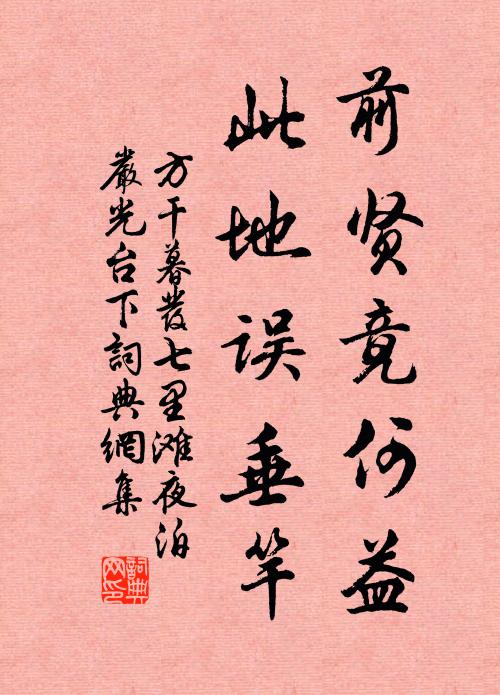 前贤竟何益
此地误垂竿
方干暮發七里滩夜泊
嚴光台下詞典網集
詞典
网印